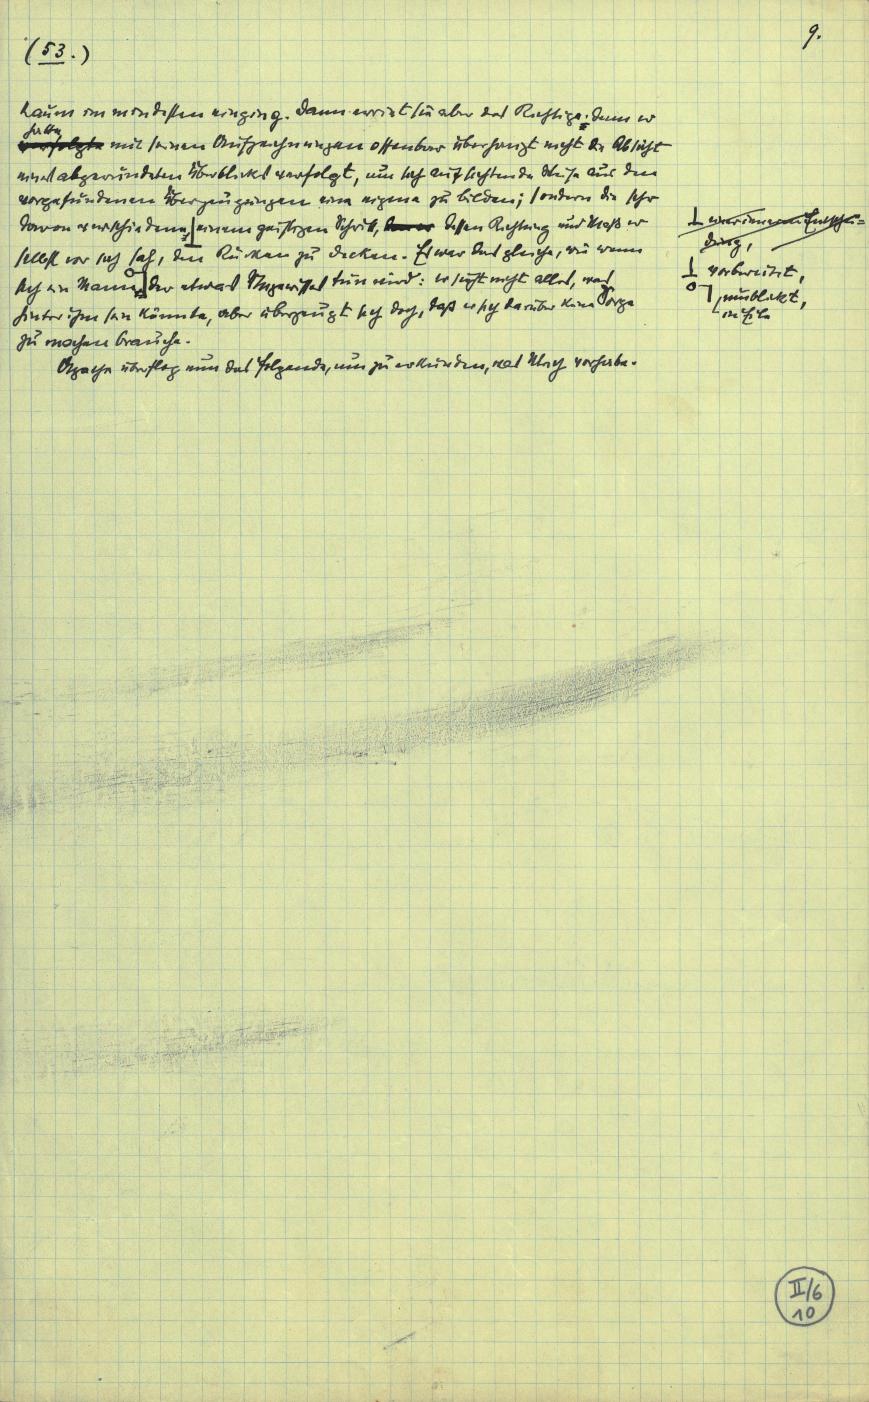 9.
(53.)
kaum im mindesten einging. Dann erriet sie aber das Richtige: denn er
hatte
verfolgte mit seinen Aufzeichnungen offenbar überhaupt nicht die Absicht
eines abgerundeten Überblicks verfolgt, um sich auf sichtende Weise aus den
vorgefundenen Überzeugungen eine eigene zu bilden; sondern die sehr
davon verschiedene, einem geistigen Schritt, dessen Richtung und Maß er
selbst vor sich sah, den Rücken zu decken. Es war das gleiche, wie wenn
sich ein Mann, der etwas Ungewisses tun wird: er sieht nicht alles, was
hinter ihm sein könnte, aber überzeugt sich doch, daß er sich darüber keine Sorge
zu machen brauche.
Agathe überflog nun das Folgende, um zu erkunden, was Ulrich vorhabe.
⊥ einer inneren Entschei=
dung,
⊥ vorbereitet,
umblickt,
in Eile
II/6
10